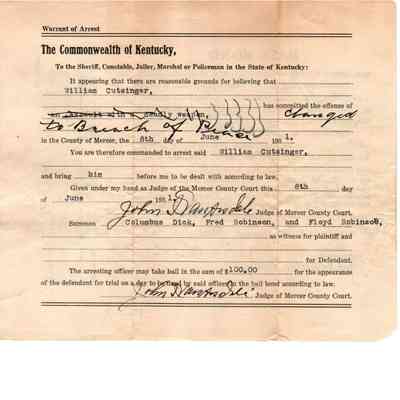 Warrant of Arrest
The Commonwealth of Kentucky,
To the Sheriff, Constable, Jailer, Marshal or Policeman in the State of Kentucky:
It appearing that there are reasonable grounds for believing that
William Cutsinger,
has committed the offense of
an Assault with a deadly weapon, changed
to Breach of Peace
in the County of Mercer, the 8th day of June 1951.
You are therefore commanded to arrest said William Cutsinger,
and bring him before me to be dealt with according to law.
Given under my hand as Judge of the Mercer County Court this 8th day
of June 1951. John D. Vanarsdale Judge of Mercer County Court.
Summon Columbus Dick, Fred Robinson, and Floyd Robinson,
as witness for plaintiff and
for Defendant.
The arresting officer may take bail in the sum of $100.00 for the appearance
of the defendant for trial on a day to be fixed by said officer in the bail bond according to law.
John D. Vanarsdale Judge of Mercer County Court.